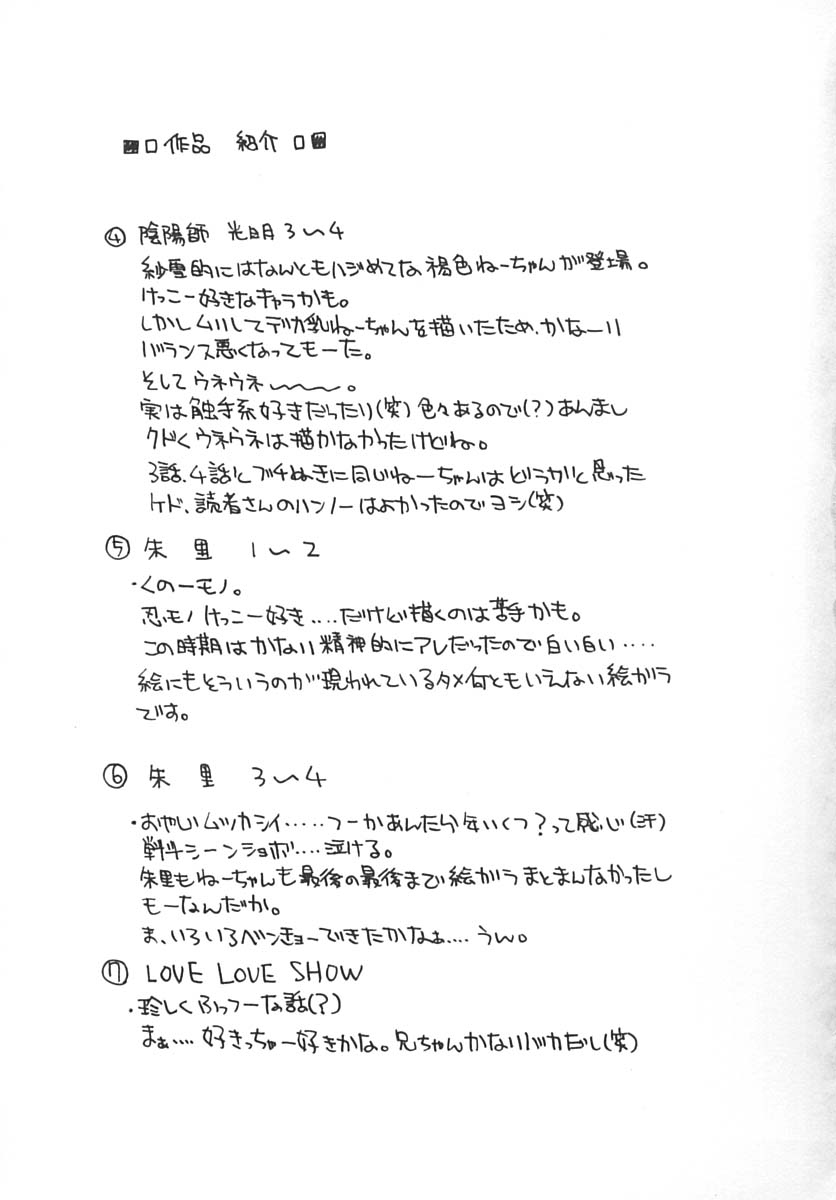 ■□作品 紹介□■
④ 陰陽師 光明3〜4
紗雪的にはなんともハジめてな褐色ねーちゃんが登場。
けっこー好きなキャラかも。
しかしムリしてデカ乳ねーちゃんを描いたため、かなーり
バランス悪くなってもーた。
そしてウネウネ〜〜〜。
実は触手系好きだったり(笑)色々あるので(?)あんまし
クドくウネウネは描かなかったけどね。
3話、4話とブチぬきに同じねーちゃんはどうかと思った
ケド、読者さんのハンノーはよかったのでヨシ(笑)
⑤ 朱里 1〜2
・くの一モノ。
忍モノけっこー好き‥‥だけど描くのは苦手かも。
この時期はかなり精神的にアレだったので白い白い‥‥
絵にもそういうのが現われているタメ何ともいえない絵がら
です。
⑥ 朱里 3〜4
・おやじムツカシイ‥‥‥つーかあんたら年いくつ?って感じ(汗)
戦斗シーンショボ‥‥泣ける。
朱里もねーちゃんも最後の最後まで絵がらまとまんなかったし
もーなんだか。
ま、いろいろベンキョーできたかなぁ‥‥うん。
⑦ LOVE LOVE SHOW
・珍しくふっつーな話(?)
まぁ‥‥好きっちゃー好きかな。兄ちゃんかなりバカだし(笑)